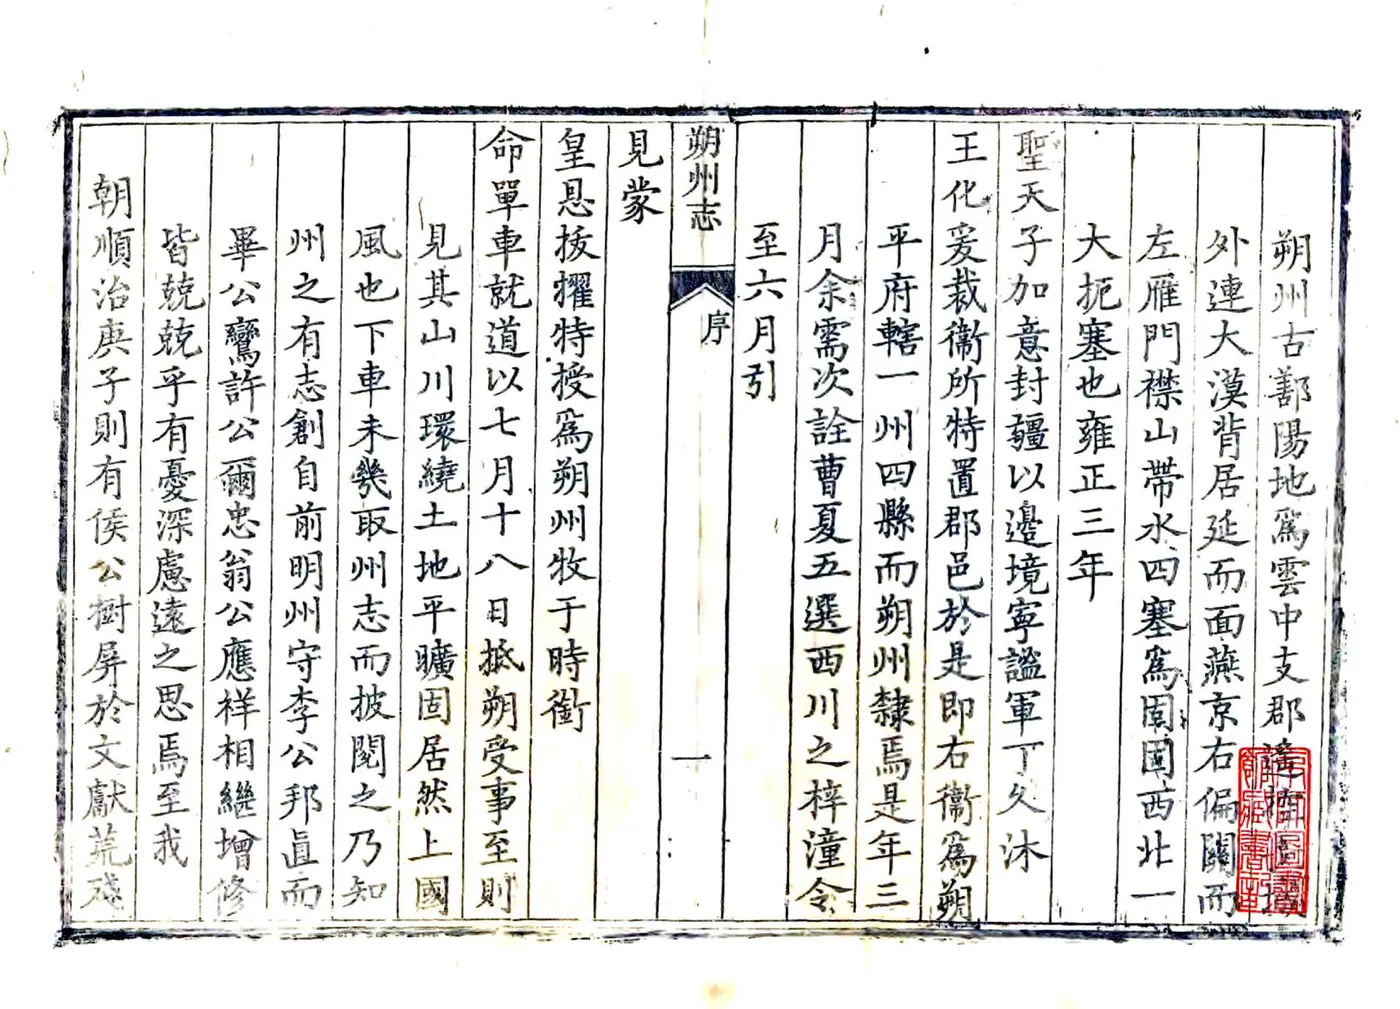 朔州古鄯陽地爲雲中支郡
外連大漠背居延而面燕京右偏關而
左雁門襟山帶水四塞爲固國西北一
大扼塞也雍正三年
聖天子加意封疆以邊境寧謐軍丁久沐
王化爰裁衛所特置郡邑於是即右衛爲朔
平府轄一州四縣而朔州隸焉是年三
月余需次詮曹夏五選西川之梓潼令
至六月引
朔州志
序
一
見蒙
皇恩拔擢特授爲朔州牧于時銜
命單車就道以七月十八日抵朔受事至則
見其山川環繞土地平曠固居然上國
風也下車未幾取州志而披閱之乃知
州之有志創自前明州守李公邦眞而
畢公鸞許公爾忠翁公應祥相繼增修
皆兢兢乎有憂深慮遠之思焉至我
朝順治庚子則有侯公樹屏於文獻荒殘